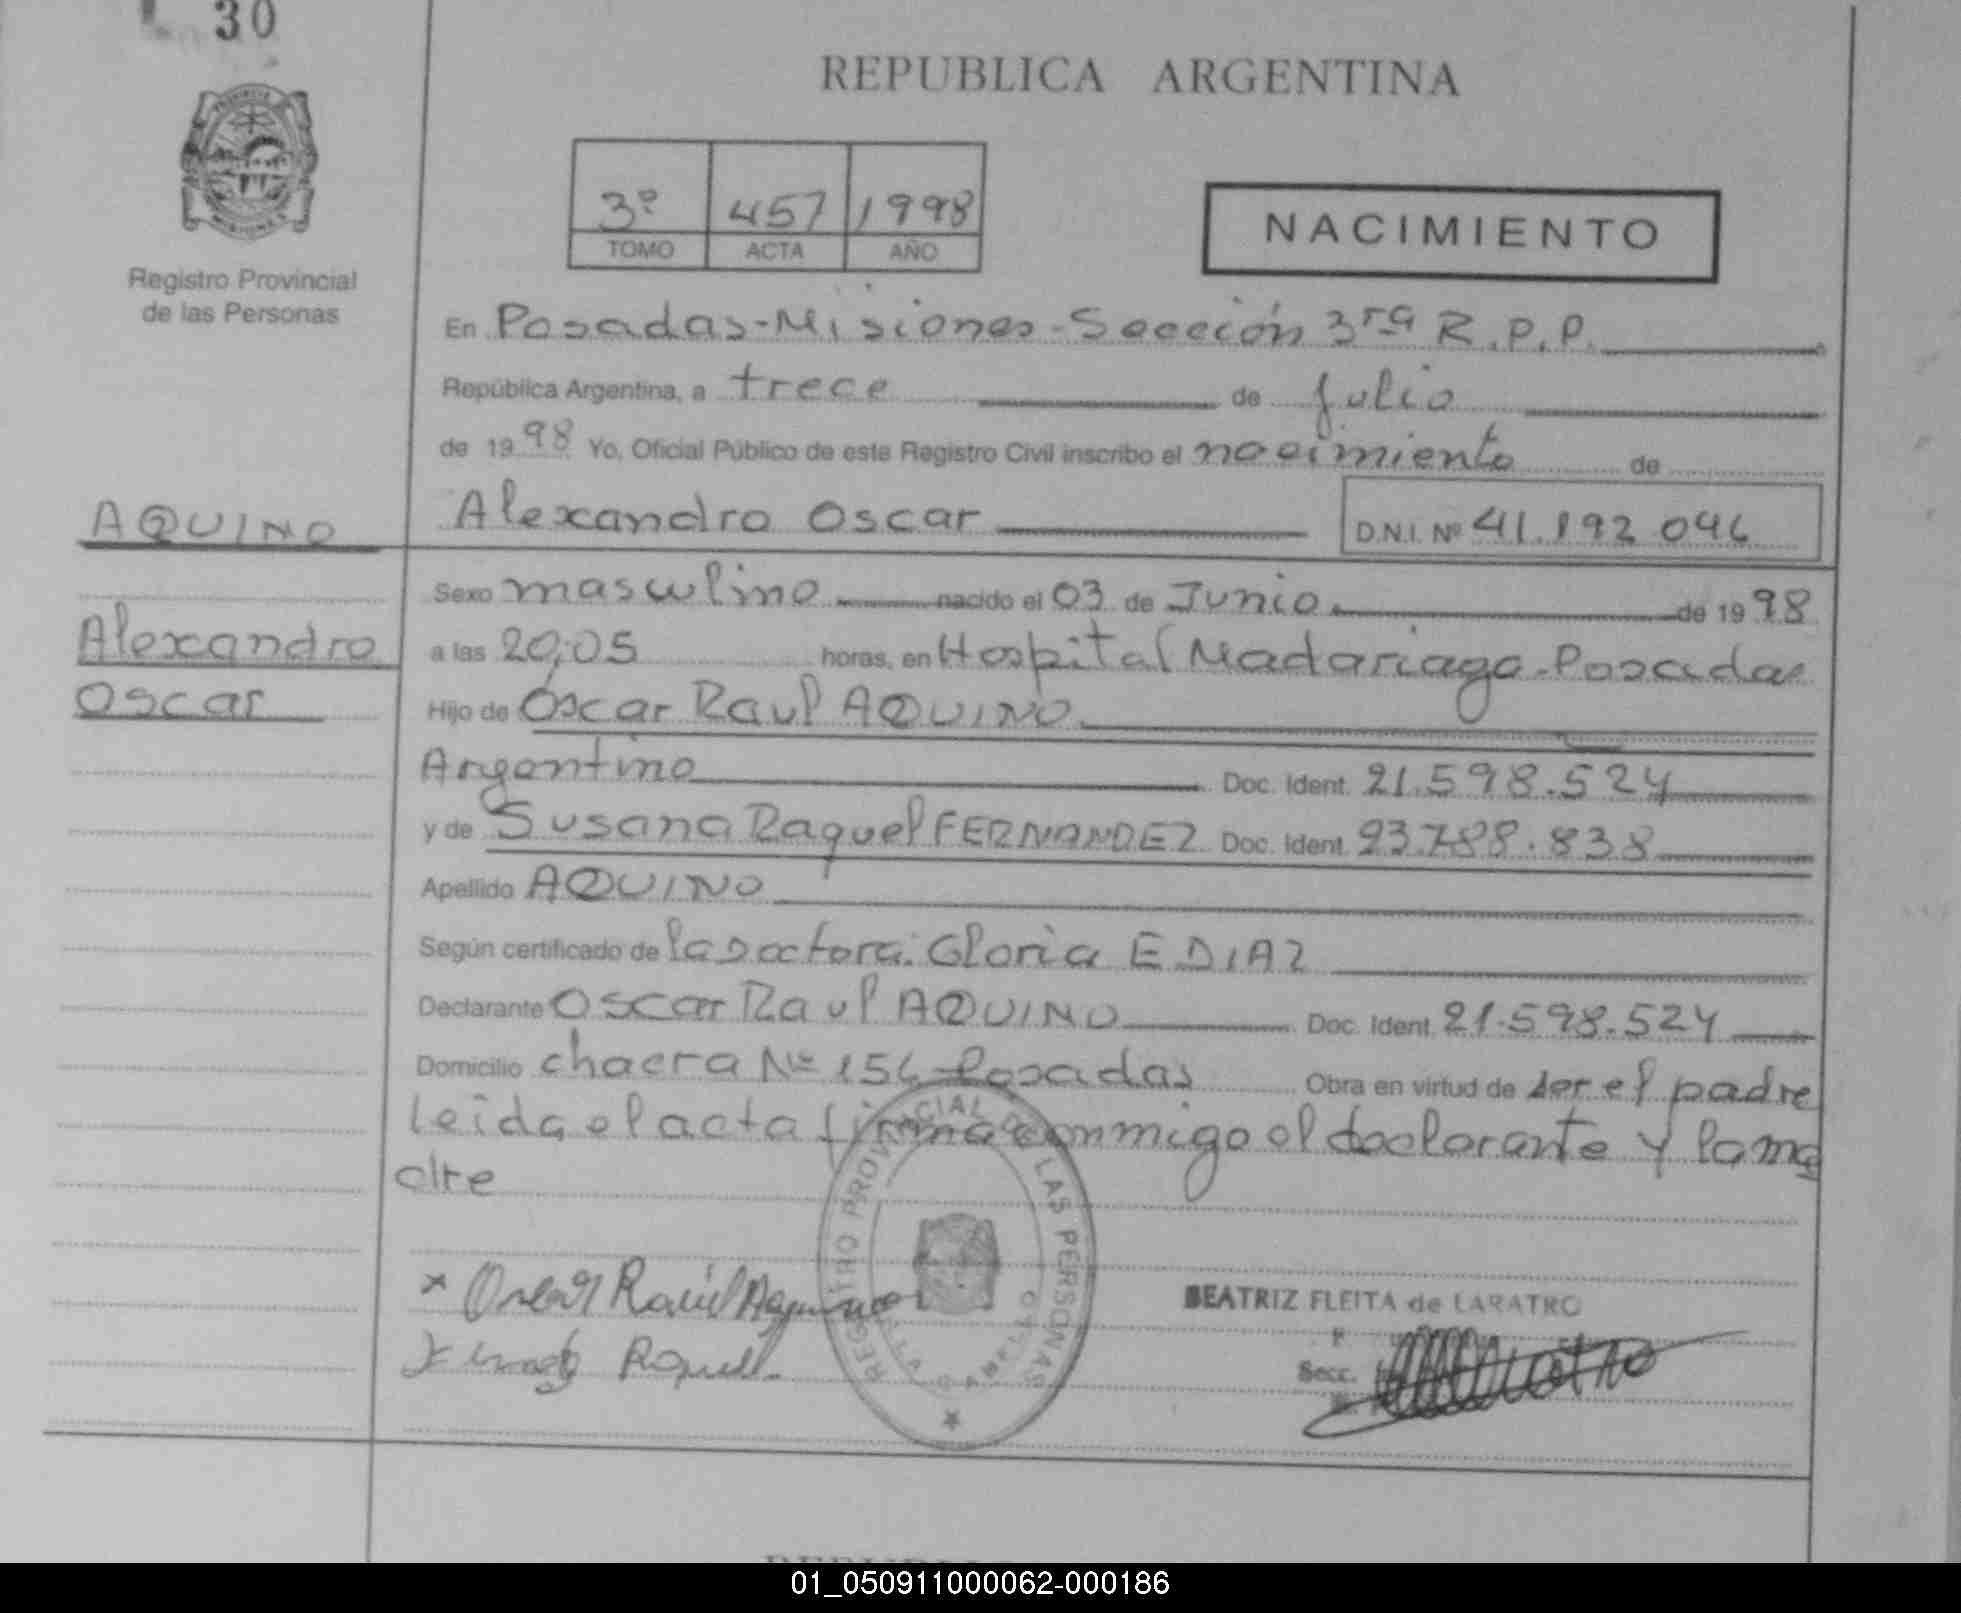 30
REPUBLICA ARGENTINA
3º 457 1998
TOMO ACTA AÑO
NACIMIENTO
Registro Provincial
de las Personas
En Posadas-Misiones-Sección 3ra R.P.P.
República Argentina, a trece de Julio
de 1998 Yo, Oficial Público de este Registro Civil inscribo el nacimiento de
AQUINO
Alexandro Oscar D.N.I. Nº 41.192.046
Sexo masculino nacido el 03 de Junio de 1998
Alexandro
a las 20;05 horas, en Hospital Madariaga-Posadas
Oscar
Hijo de Óscar Raul AQUINO
Argentino Doc. Ident. 21.598.524
y de Susana Raquel FERNANDEZ Doc. Ident. 23.788.838
Apellido AQUINO
Según certificado de la Doctora: Gloria E DIAZ
Declarante Oscar Raul AQUINO Doc. Ident. 21.598.524
Domicilio chacra Nº 156 Posadas Obra en virtud de ser el padre
Leida el acta firma conmigo el declarante y la ma
dre
REGISTRO PROVINCIAL DE LAS PERSONAS
x Oscar Raúl Aquino
BEATRIZ FLEITA de LARATRO
x Raquel
Secc.
01_050911000062-000186